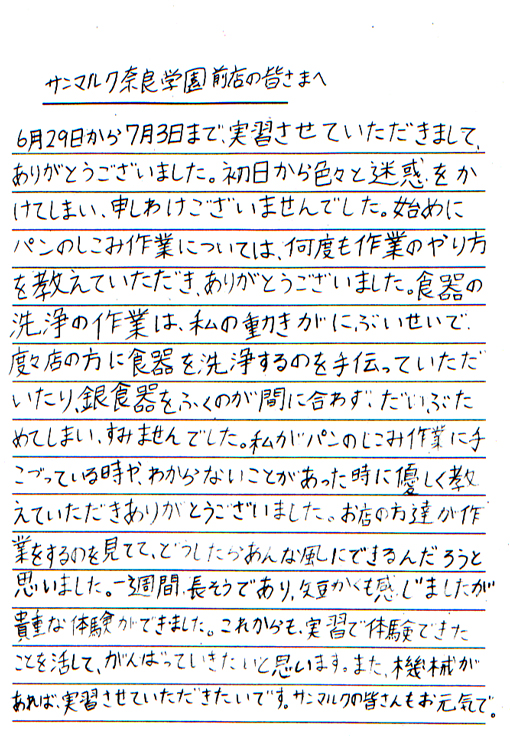 サンマルク奈良学園前店の皆さまへ
6月29日から7月3日まで、実習させていただきまして、
ありがとうございました。初日から色々と迷惑をか
けてしまい、申しわけございませんでした。始めに
パンのしこみ作業については、何度も作業のやり方
を教えていただき、ありがとうございました。食器の
洗浄の作業は、私の動きがにぶいせいで、
度々店の方に食器を洗浄するのを手伝っていただ
いたり、銀食器をふくのが間に合わず、だいぶた
めてしまい、すみませんでした。私がパンのしこみ作業に手
こづっている時や、わからないことがあった時に優しく教
えていただきありがとうございました。お店の方達が作
業をするのを見てて、どうしたらあんな風にできるんだろうと
思いました。一週間、長そうであり、短かくも感じましたが
貴重な体験ができました。これからも、実習で体験できた
ことを活して、がんばっていきたいと思います。また、機械が
あれば、実習させていただきたいです。サンマルクの皆さんもお元気で。